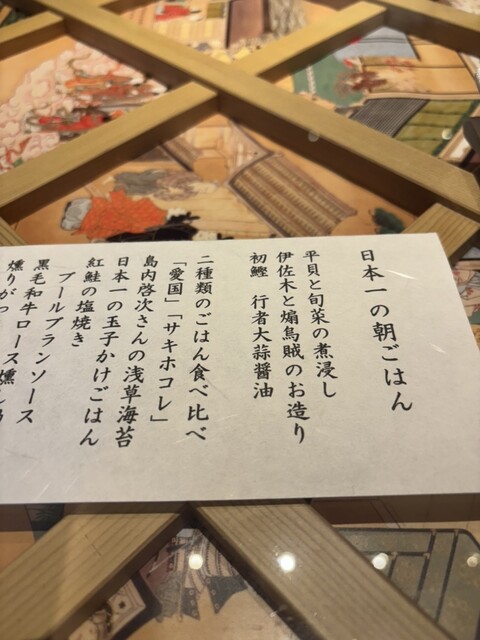 日本一の朝ごはん
平貝と旬菜の煮浸し
伊佐木と煽烏賊のお造り
初鰹　行者大蒜醤油
二種類のごはん食べ比べ
「愛国」「サキホコレ」
島内啓次さんの浅草海苔
日本一の玉子かけごはん
紅鮭の塩焼き
ブールブランソース
黒毛和牛ロース燻し
燻りがっ